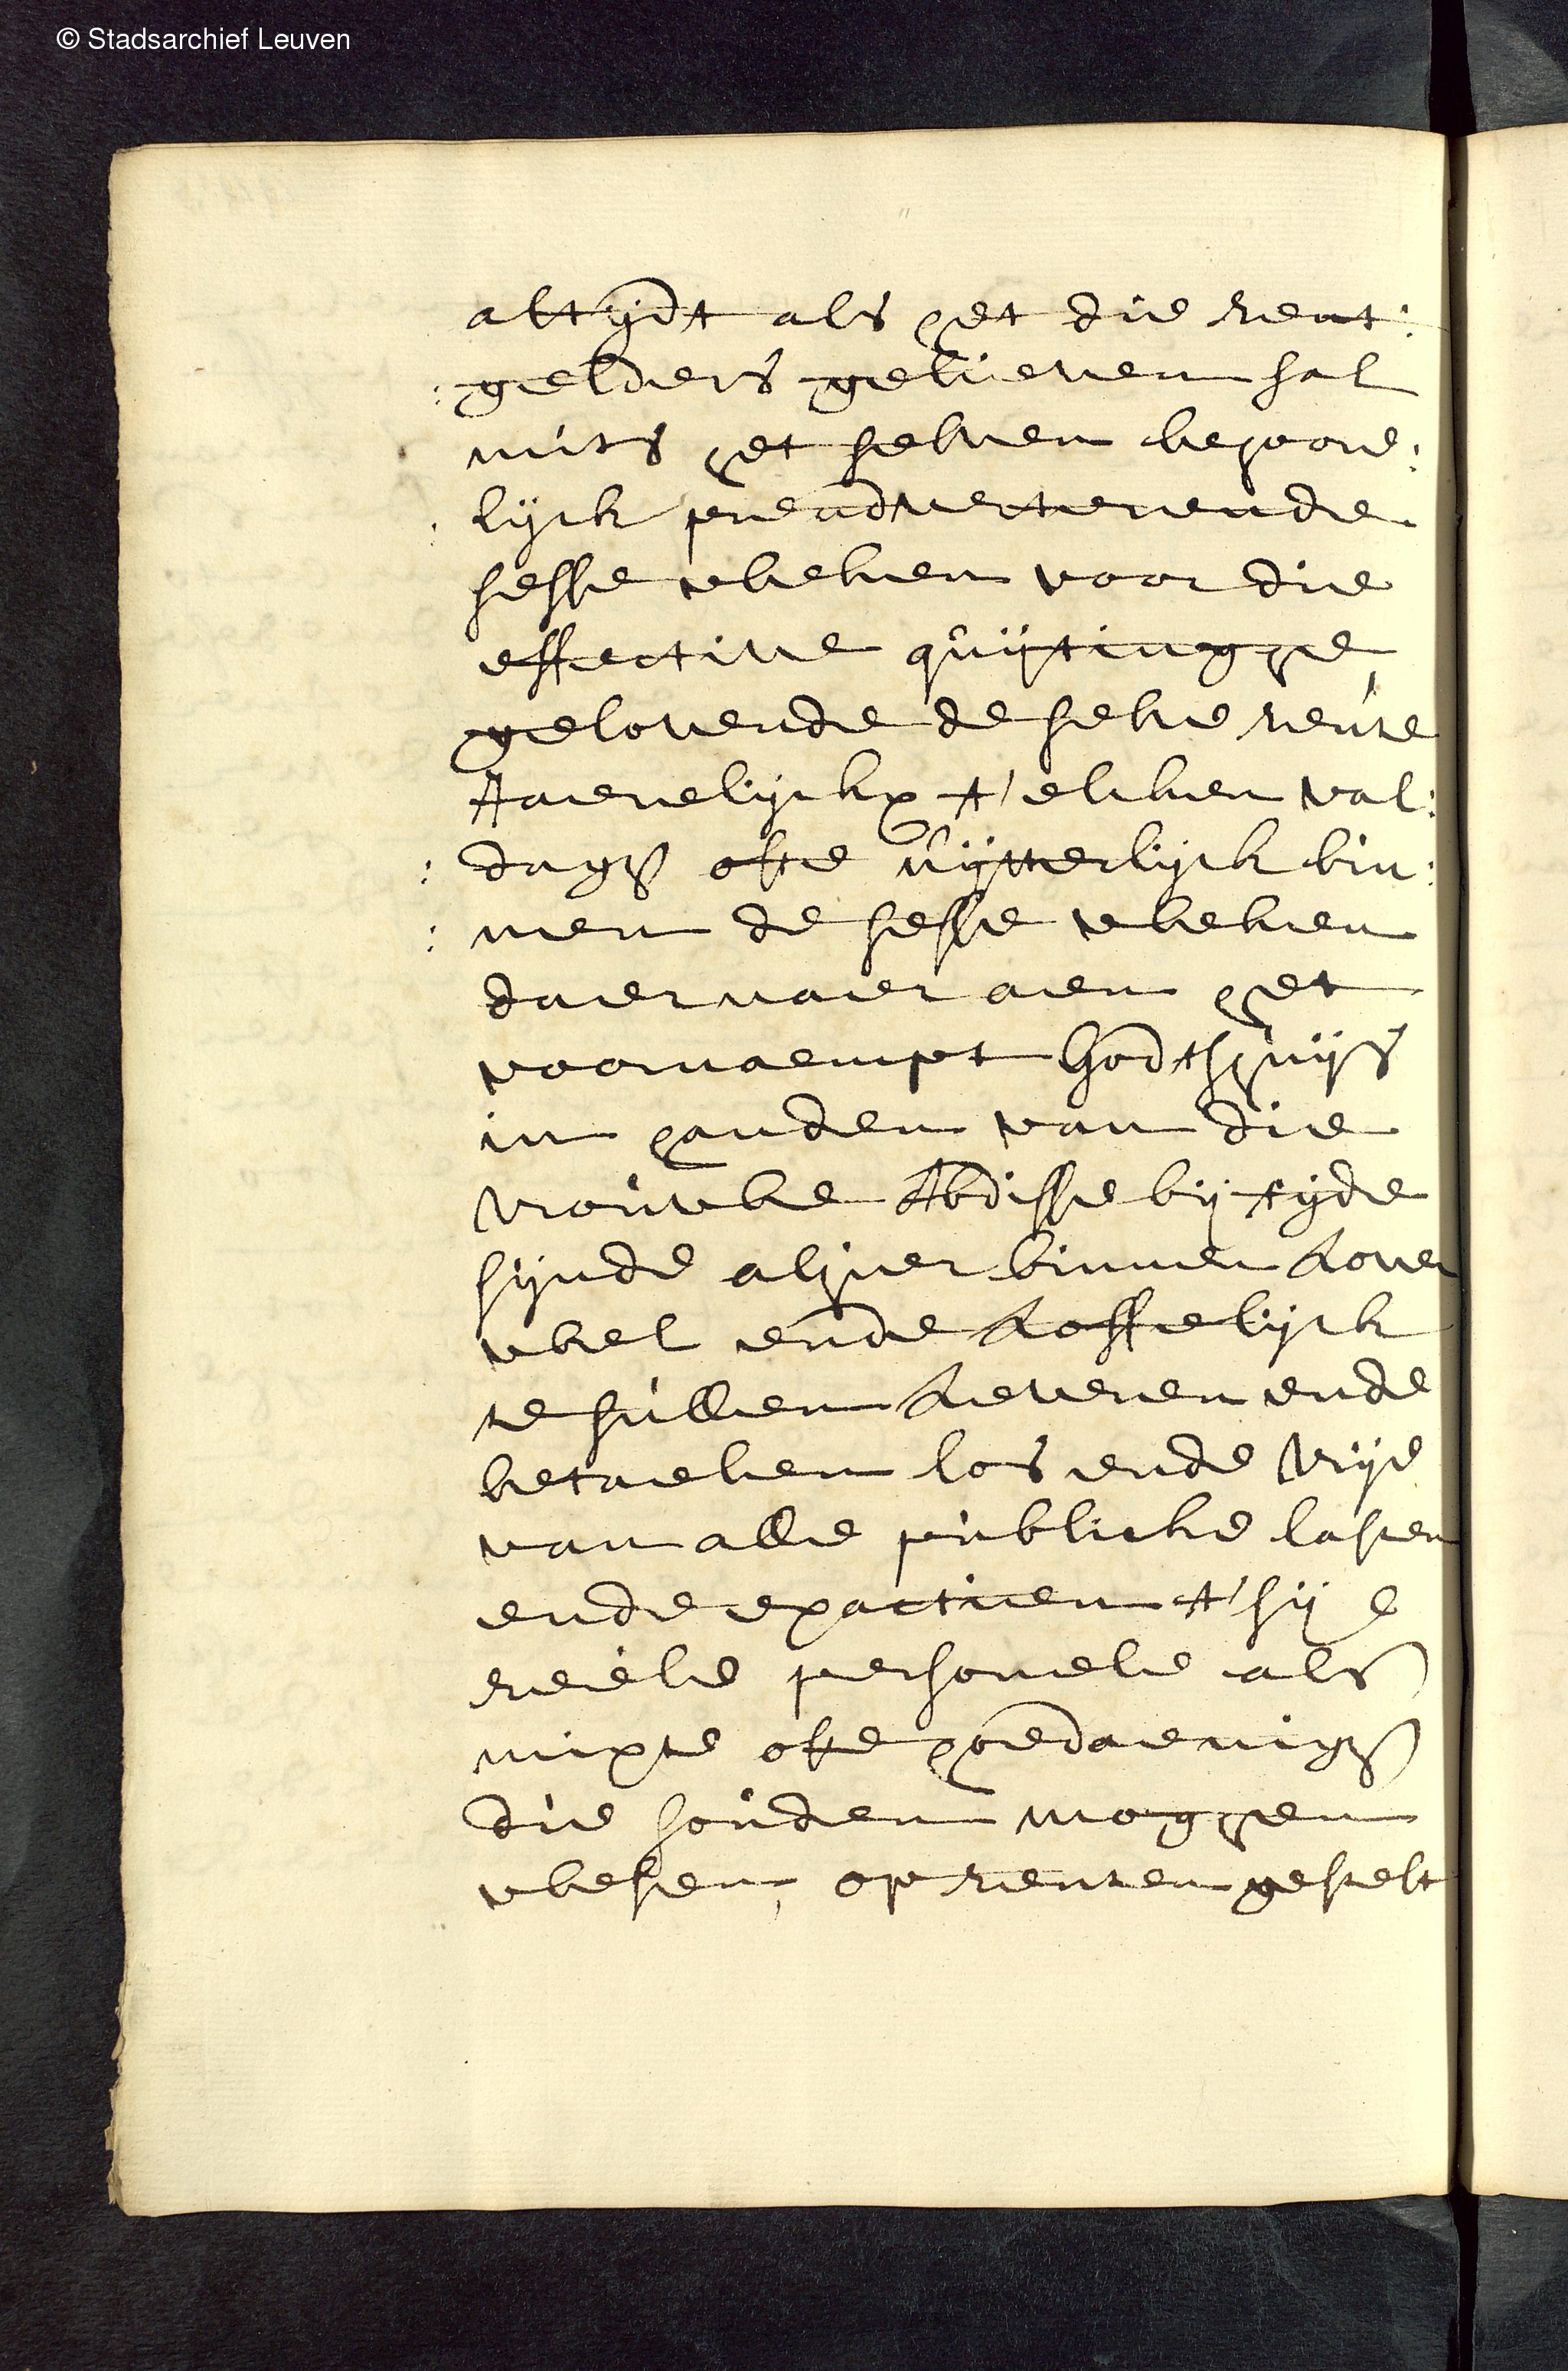 © Stadsarchief Leuven
altijdt als het die rent:
:gelders gelieven sal
mits het selven behoore:
:lijck preadverterende
sesse weken voor die
effective quijtinghe,
gelovende de selve rente
Jaerelijckx t' elcken val:
:dagh ofte uijtterlijck bin:
:nen de sesse weken
daer naer aen het
voornaempt Godtshuijs
in handen van die
Vrouwe Abdisse bij tijde
sijnde alhier binnen Loven
wel ende Loffelijck
te sullen Leveren ende
betaelen los ende vrije
van alle publicke lasten
ende exactien t' sij
reële personele als
mixte ofte hoedaenigh
die souden moghen
wesen, op renten gestelt